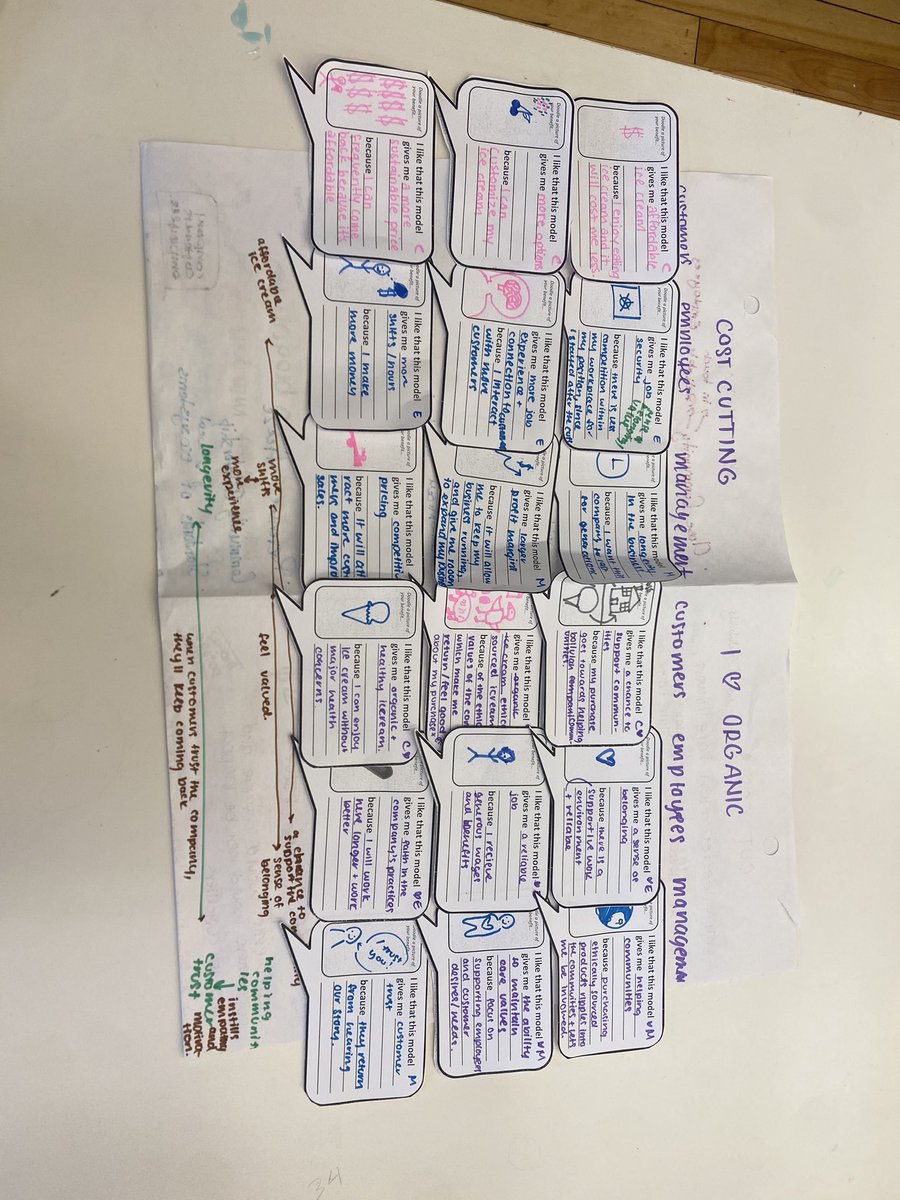 COST CUTTING
I ♡ ORGANIC
customers
employees
management
customers
employees
managem
Doodle a picture of
your benefit...
I like that this model C
gives me affordable
ice cream
because I enjoy eating
ice cream and it
will cost me less
Doodle a picture of
your benefit...
I like that this model E
gives me job
security
because there is less
competition within
my workplace for
my position, since
Doodle a picture of
I like that this model M
gives me longevity
in the business
because I want the
company to
for generations
I like that this model C♡
gives me a chance to
support commun-
ities
because my purchase
goes towards helping
Doodle a picture of
your benefit...
I like that this model ♡E
gives me a sense of
belonging
because there is a
supportive work
environment
+ reliable
picture of
I like that this model ♡M
gives me helping
communities
because purchasing
ethically sourced
products ripples into
the communities + lets
me be involved
Doodle a picture of
your benefit...
I like that this model C
gives me more options
because I can
customize my
ice cream
Doodle a picture of
your benefit...
I like that this model E
gives me more job
experience +
connection to
because I interact
with more
customers
Doodle a picture of
your benefit...
$
I like that this model M
gives me larger
profit margins
because it will allow
me to keep my
business running,
and give me room
to expand my
Doodle a picture of
your benefit...
I like that this model
gives me organic
ice cream ethic
sourced icecream
because of the ethic
values of the com
which make me
return/feel good
about my purchase
Doodle a picture of
your benefit...
I like that this model ♡E
gives me a reliable
job
because I recieve
generous wages
and benefits
Doodle a picture of
your benefit...
I like that this model ♡M
gives me the ability
to maintain
core values
because focus on
supporting employees
and customer
desires/needs.
Doodle a picture of
your benefit...
$$$$
$$$
I like that this model C
gives me a more
sustainable price
because I can
frequently come
back because its
affordable
Doodle a picture of
your benefit...
I like that this model E
gives me more
shifts/hours
because I make
more money
Doodle a picture of
your benefit...
I like that this model
gives me competitive
pricing
because it will att
ract more custo
mers and improve
sales.
Doodle a picture of
your benefit...
I like that this model C♡
gives me organic +
healthy icecream.
because I can enjoy
ice cream without
major health
concerns
I like that this model ♡E
gives me faith in the
company's practices
because I will work
here longer + work
better
Doodle a picture of
your benefit...
I trust you
I like that this model M
gives me customer
trust
because they return
from hearing
our story.
affordable
ice cream
more
shifts
more
experience
longevity
feel valued.
a chance to
support the com
sense of
belonging
helping
communit
ies
when customers trust the company,
they'll keep coming back
instills
employee
motiva-
tion.
customer
trust